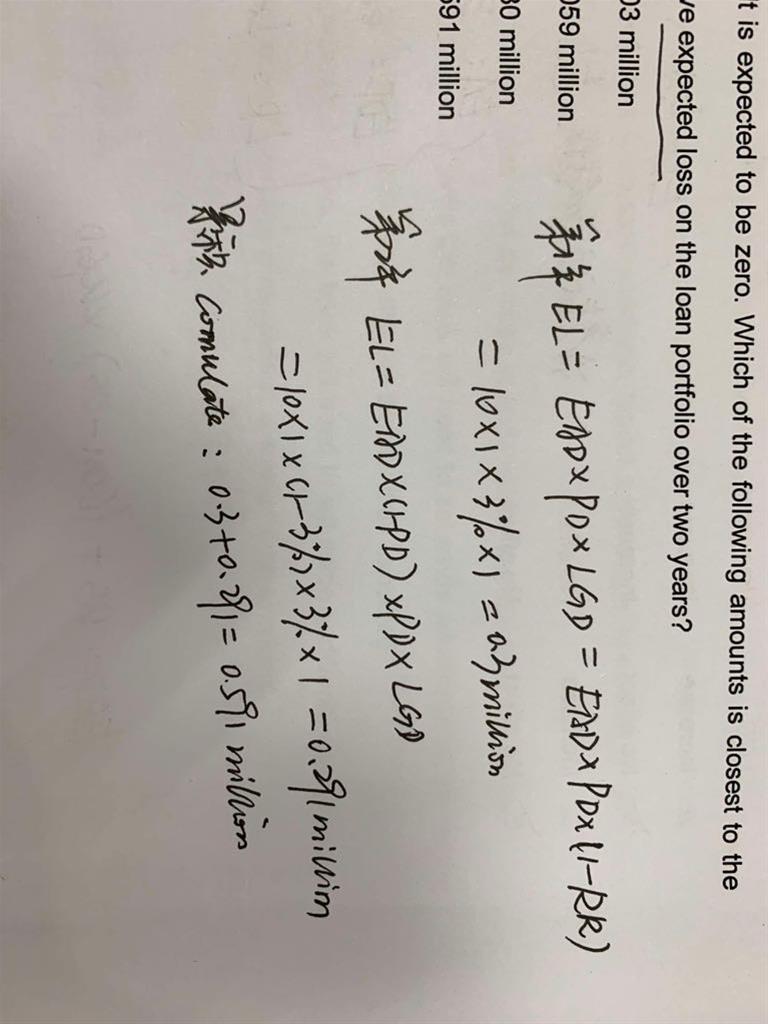 It is expected to be zero. Which of the following amounts is closest to the
ve expected loss on the loan portfolio over two years?
03 million
059 million
30 million
591 million
第1年 EL = EAD x PD x LGD = EAD x PD x (1-RR)
= 10 x 1 x 3% x 1 = 0.3 million
第2年 EL = EAD x (1-PD) x PD x LGD
= 10 x 1 x (1-3%) x 3% x 1 = 0.291 million
累积 comulate : 0.3 + 0.291 = 0.591 million